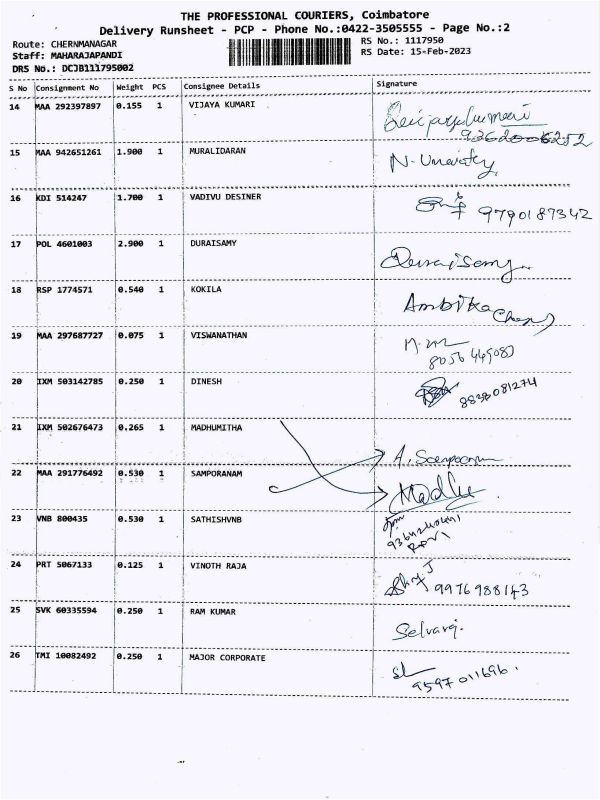 THE PROFESSIONAL COURIERS, Coimbatore
Delivery Runsheet - PCP - Phone No.:0422-3505555 - Page No.:2
Route: CHERNMANAGAR RS No.: 1117950
Staff: MAHARAJAPANDI RS Date: 15-Feb-2023
DRS No.: DCJB111795002
S No Consignment No Weight PCS Consignee Details Signature
14 MAA 292397897 0.155 1 VIJAYA KUMARI
15 MAA 942651261 1.900 1 MURALIDARAN
16 KDI 514247 1.700 1 VADIVU DESINER 9790187342
17 POL 4601003 2.900 1 DURAISAMY Duraisamy
18 RSP 1774571 0.540 1 KOKILA Ambika
19 MAA 297687727 0.075 1 VISWANATHAN
20 IXM 503142785 0.250 1 DINESH 8838081274
21 IXM 502676473 0.265 1 MADHUMITHA
22 MAA 291776492 0.530 1 SAMPORANAM Madhu
23 VNB 800435 0.530 1 SATHISHVNB
24 PRT 5067133 0.125 1 VINOTH RAJA 9976988143
25 SVK 60335594 0.250 1 RAM KUMAR Selvaraj.
26 TMI 10082492 0.250 1 MAJOR CORPORATE 9597011696.